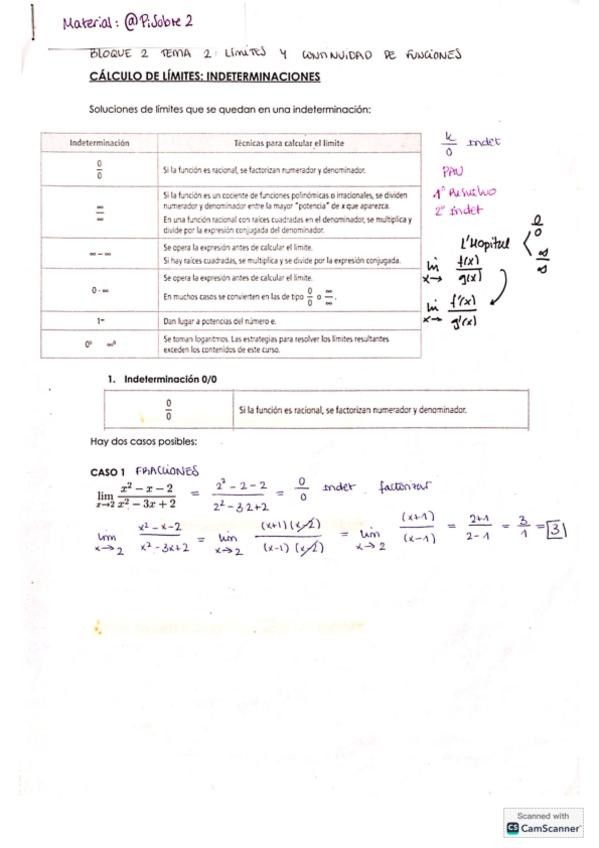 Material: @PiSobre2
BLOQUE 2 TEMA 2: LÍMITES Y CONTINUIDAD DE FUNCIONES
CÁLCULO DE LÍMITES: INDETERMINACIONES
Soluciones de límites que se quedan en una indeterminación:
Indeterminación Técnicas para calcular el límite
0/0 Si la función es racional, se factorizan numerador y denominador.
∞/∞ Si la función es un cociente de funciones polinómicas o irracionales, se dividen
numerador y denominador entre la mayor "potencia" de x que aparezca.
En una función racional con raíces cuadradas en el denominador, se multiplica y
divide por la expresión conjugada del denominador.
∞ – ∞ Se opera la expresión antes de calcular el límite.
Si hay raíces cuadradas, se multiplica y se divide por la expresión conjugada.
0 · ∞ Se opera la expresión antes de calcular el límite.
En muchos casos se convierten en las de tipo 0/0 o ∞/∞.
1^∞ Dan lugar a potencias del número e.
0⁰ ∞⁰ Se toman logaritmos. Las estrategias para resolver los límites resultantes
exceden los contenidos de este curso.
k/0 indet
PAU
1º Resuelvo
2º indet
L'Hopital 0/0 ∞/∞
lim x→ f(x)/g(x)
lim x→ f'(x)/g'(x)
1. Indeterminación 0/0
0/0 Si la función es racional, se factorizan numerador y denominador.
Hay dos casos posibles:
CASO 1 FRACCIONES
lim x→2 x² − x − 2 / x² − 3x + 2 = 2² - 2 - 2 / 2² - 3·2+2 = 0/0 indet. factorizar
lim x→2 x² - x - 2 / x² - 3x+2 = lim x→2 (x+1)(x-2) / (x-1)(x-2) = lim x→2 (x+1)/(x-1) = 2+1/2-1 = 3/1 = 3
Scanned with
CS CamScanner